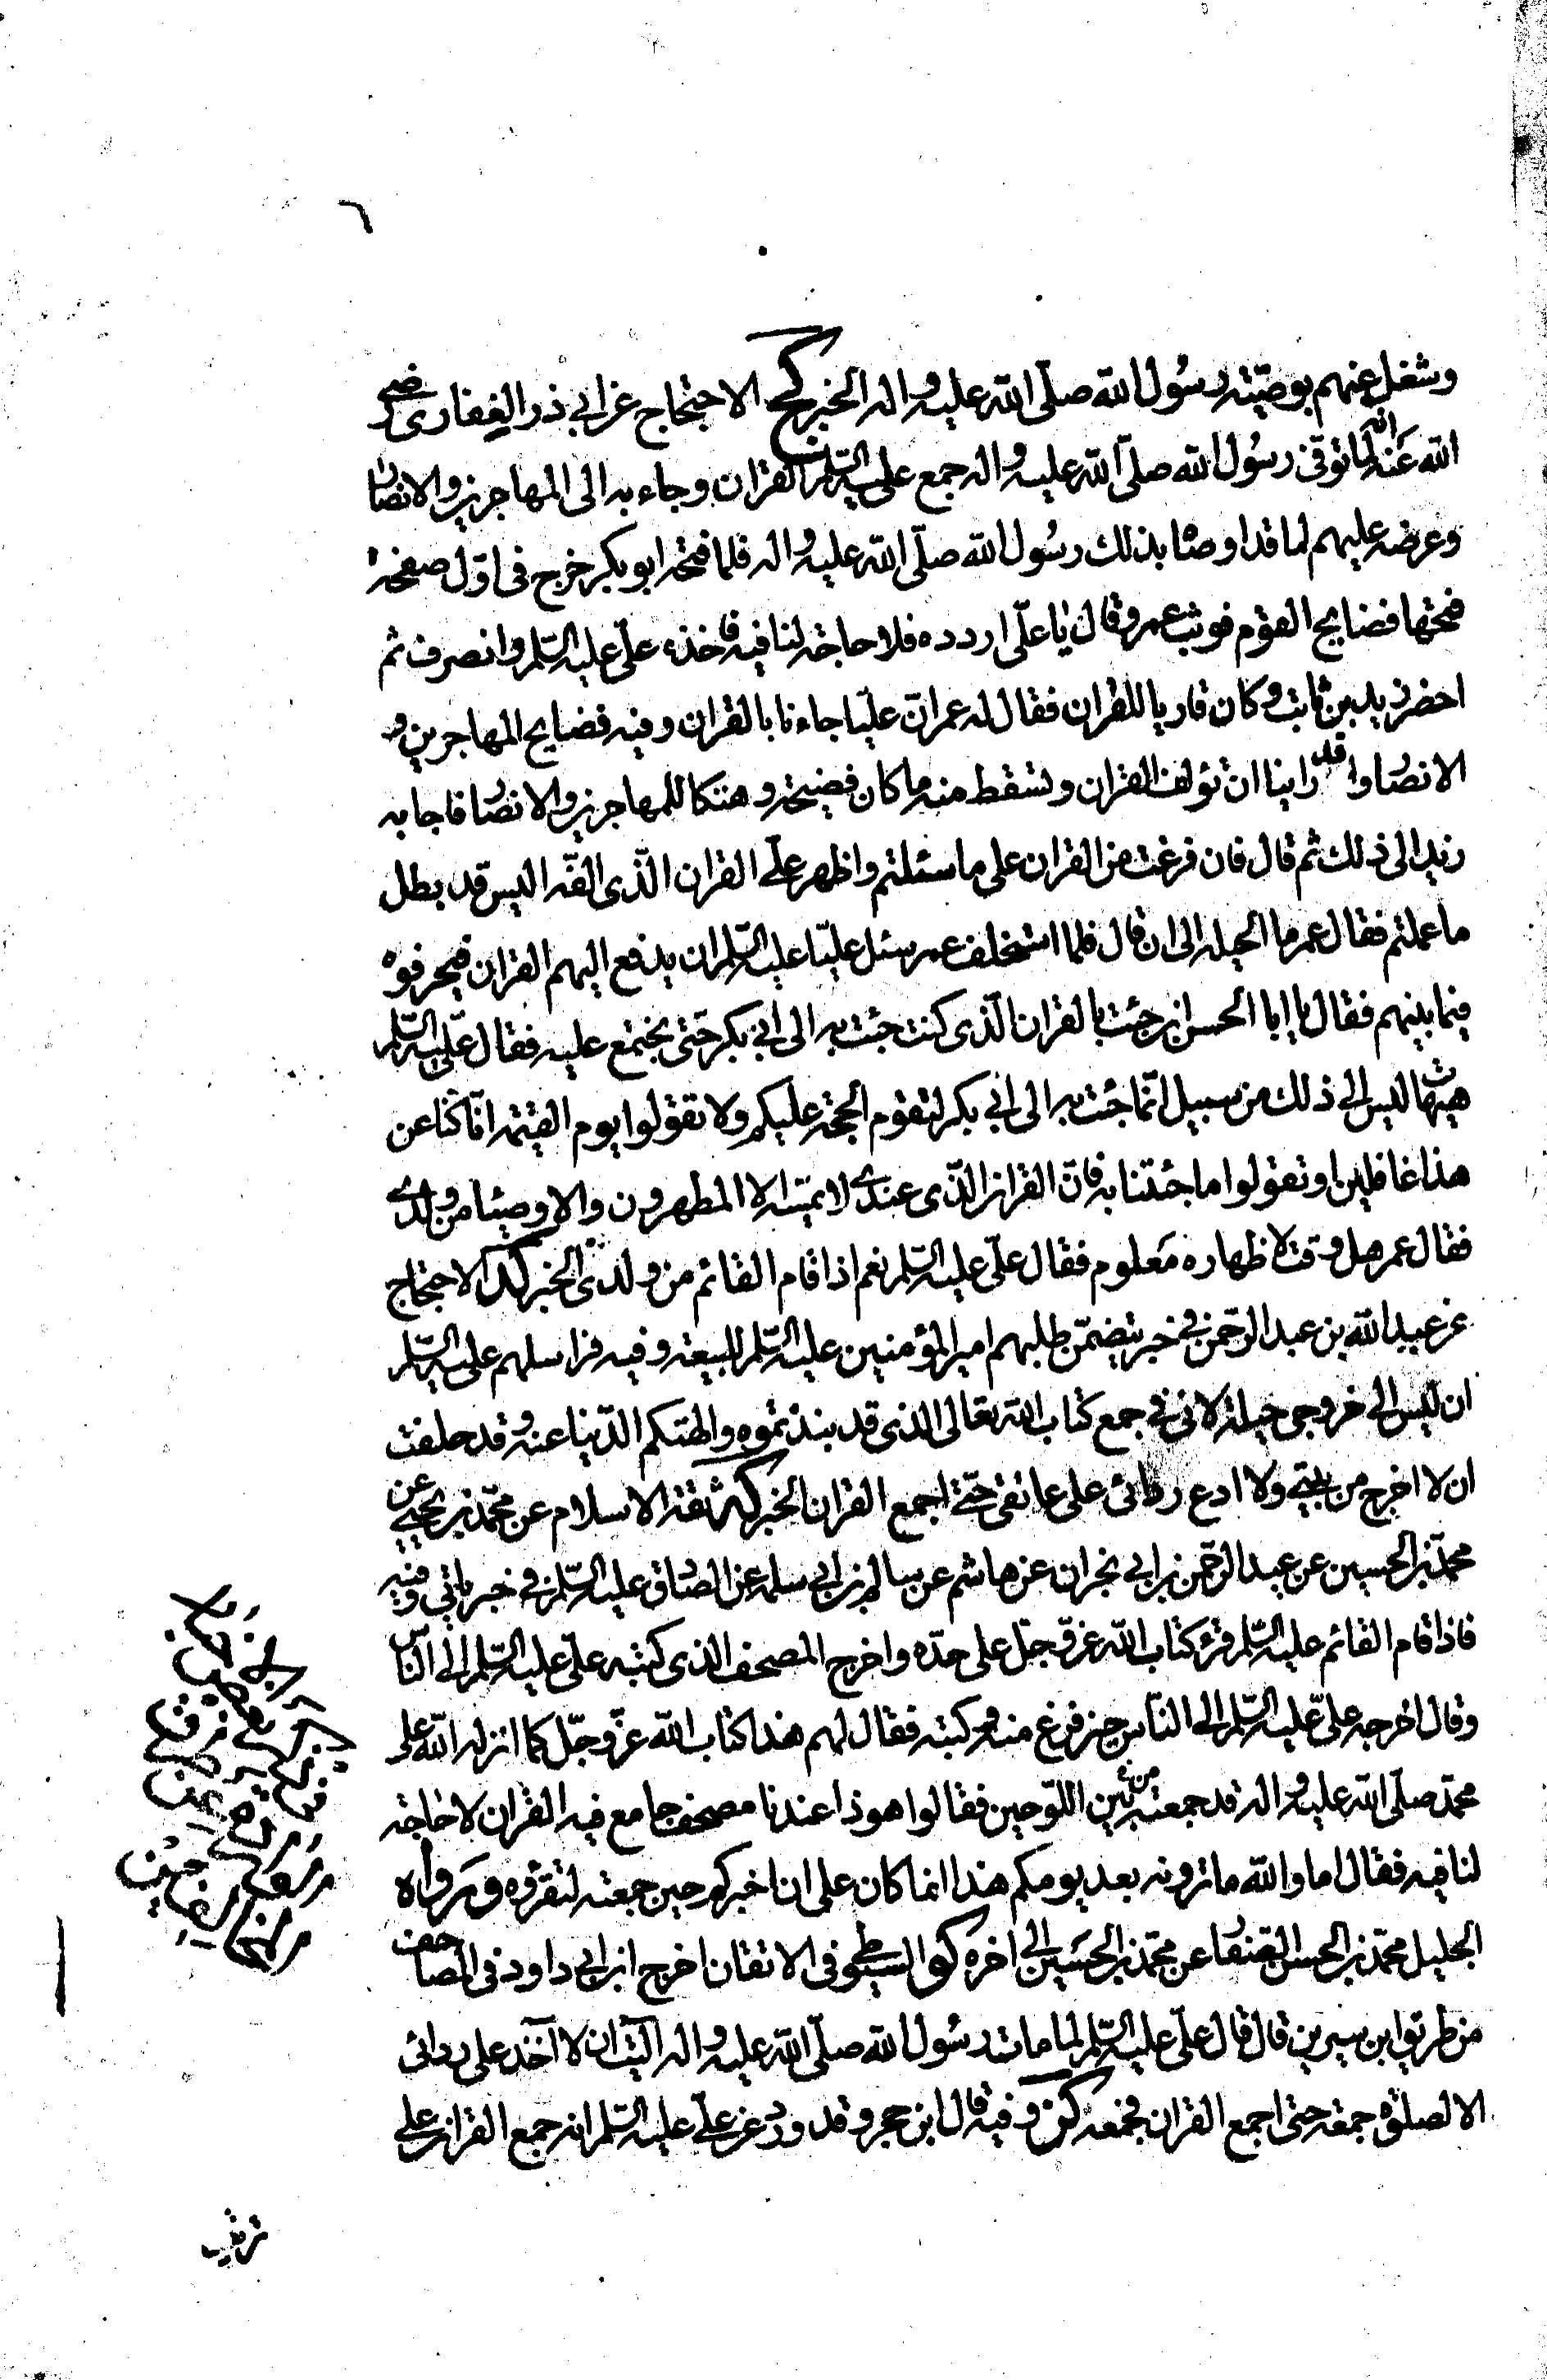 ٦
وشغل عنهم بوصيّته رسُول الله صلّى الله عليه واله الخبر كج الاحتجاج عن ابى ذر الغفارى رضى
الله عَنه انّه لمّا توفى رسُول الله صلّى الله عليه واله جمع على عليه السّلم القران وجاء به الى المهاجرين والانصار
وعرضه عليهم لما قد اوصاه بذلك رسُول الله صلّى الله عليه واله فلما فتحه ابو بكر خرج فى اوّل صفحة
فتحها فضايح القوم فوثب عمر وقال يا علّى اردده فلا حاجة لنا فيه فاخذه علّى عليه السّلم وانصرف ثم
احضر زيد بن ثابت وكان قاريا للقران فقال له عمر انّ عليّا جاءنا بالقران وفيه فضايح المهاجرين و
الانصار وقد راينا ان نؤلف القران ونسقط منه ما كان فضيحة وهتكا للمهاجرين والانصار فاجابه
زيد الى ذلك ثم قال فان فرغت من القران على ما سئلتم واظهر علّى القران الّذى الفّه اليس قد بطل
ما عملتم فقال عمر ما الحيلة الى ان قال فلما استخلف عمر سئل عليّا عليه السّلم ان يدفع اليهم القران فيحرفوه
فيما بينهم فقال يا ابا الحسن ان جئت بالقران الّذى كنت جئت به الى ابى بكر حتى نجتمع عليه فقال علّى عليه السّلم
هيهات ليس الى ذلك من سبيل انّما جئت به الى ابى بكر لتقوم الحجّة عليكم ولا تقولوا يوم القيٰمة انّا كنّا عن
هذا غافلين او تقولوا ما جئتنا به فانّ القران الذّى عندى لا يمسّه الا المطهرون والاوصياء من ولدى
فقال عمر هل وقت لاظهاره مَعلوم فقال علّى عليه السّلم نعم اذا قام القائم من ولدى الخبر كد الاحتجاج
عن عبيد الله بن عبد الرحمن فى خبر يتضمّن طلبهم امير المؤمنين عليه السّلم للبيعة وفيه فراسلهم عليه السّلم
ان ليس الى خروجى حيلة لانى فى جمع كتاب الله تعالى الذى قد نبذتموه والهتكم الدّنيا عنه وقد حلفت
ان لا اخرج من بيتى ولا ادع ردائى على عاتقى حتّى اجمع القران الخبر كه ثقة الاسلام عن محمّد بن يحيى عن
محمّد بن الحسين عن عبد الرّحمن بن ابى نجران عن هاشم عن سالم بن ابى سلمة عن الصادق عليه السّلم فى خبر ياتى وفيه
فاذا قام القائم عليه السّلم قرء كتاب الله عزّ وجلّ على حدّه واخرج المصحف الذى كتبه علّى عليه السّلم الى النّاس
وقال اخرجه علّى عليه السّلم الى النّاس حين فرغ منه وكتبه فقال لهم هذا كتاب الله عزّ وجلّ كما انزله الله على
محمّد صلّى الله عليه واله قد جمعته من بين اللّوحين فقالوا هو ذا عندنا مصحف جامع فيه القران لا حاجة
لنا فيه فقال اما والله ما ترونه بعد يومكم هذا انما كان على ان اخبركم حين جمعته لتقرؤه ورواه
الجليل محمّد بن الحسن الصّفار عن محمّد بن الحسَين الى اخره كو السيوطى فى الاتقان اخرج ابن ابى داود فى المصاحف
من طريق ابن سيرين قال قال علّى عليه السّلم لما مات رسُول الله صلّى الله عليه واله آليت ان لا آخذ على ردائى
الا لصلوة جمعة حتى اجمع القران فجمعه كز وفيه قال ابن حجر وقد ورد عن علّى عليه السّلم انه جمع القران على
ترتيب